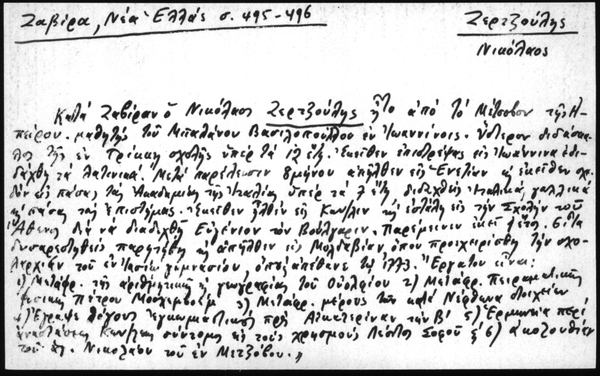 Ζαβίρα, Νέα Ἑλλάς σ. 495-496
Ζερτζούλης
Νικόλαος
Κατά Ζαβίραν ὁ Νικόλαος Ζερτζούλης ἦτο ἀπό τό Μέτσοβον τῆς Ἠ-
πείρου. μαθητής τοῦ Μπαλάνου Βασιλοπούλου ἐν Ἰωαννίνοις. Ὕστερον διδάσκα-
λος τῆς ἐν Τρίκκῃ σχολῆς ὑπέρ τά 12 ἔτη. Ἐκεῖθεν ἐπιστρέψας εἰς Ἰωάννινα ἐδι-
δάχθη τά Λατινικά. Μετά παρέλευσιν 8μήνου ἀπῆλθεν εἰς Ἐνετίαν κ ἐκεῖθεν σχε-
δόν εἰς πάσας τάς Ἀκαδημίας τῆς Ἰταλίας ὑπέρ τά ἔτη διδαχθείς Ἰταλικά, γαλλικά
κ πάσας τάς ἐπιστήμας. Ἐκεῖθεν ἦλθεν εἰς Κων/λιν κ ἐστάλη εἰς τήν Σχολήν τοῦ
Ἄθωνος διά νά διαδεχθῇ Εὐγένιον τόν Βούλγαριν. Παρέμεινεν ἐκεῖ ἔτη. Εἶτα
δυσαρεστηθείς παρῃτήθη κ ἀπῆλθεν εἰς Μολδαβίαν, ὅπου προεχειρίσθη τήν σχο-
λαρχίαν τοῦ ἐν Ἰασίῳ γυμνασίου, ὅπου ἀπέθανε τῷ. Ἔργα του εἶναι:
1) Μετάφρ. τῆς ἀριθμητικῆς κ γεωγραφίας τοῦ Οὐολφίου 2) Μετάφρ. Πειραματικῆς
φυσικῆς Πέτρου Μουσχεμβοέκ 3) Μετάφρ. μέρους τῶν κατά Νεύθωνα στοιχείων
4) Ἔγραψε λόγους ἐγκωμιαστικούς πρός Αἰκατερίναν τήν Β' 5) Ἑρμηνεία περί
ἀναστάσεως Κων/λεως σύντομος εἰς τούς χρησμούς Λέοντος Σοφοῦ 6) ἀκολουθίαν
τοῦ ἁγ. Νικολάου τοῦ ἐν Μετζόβου.»